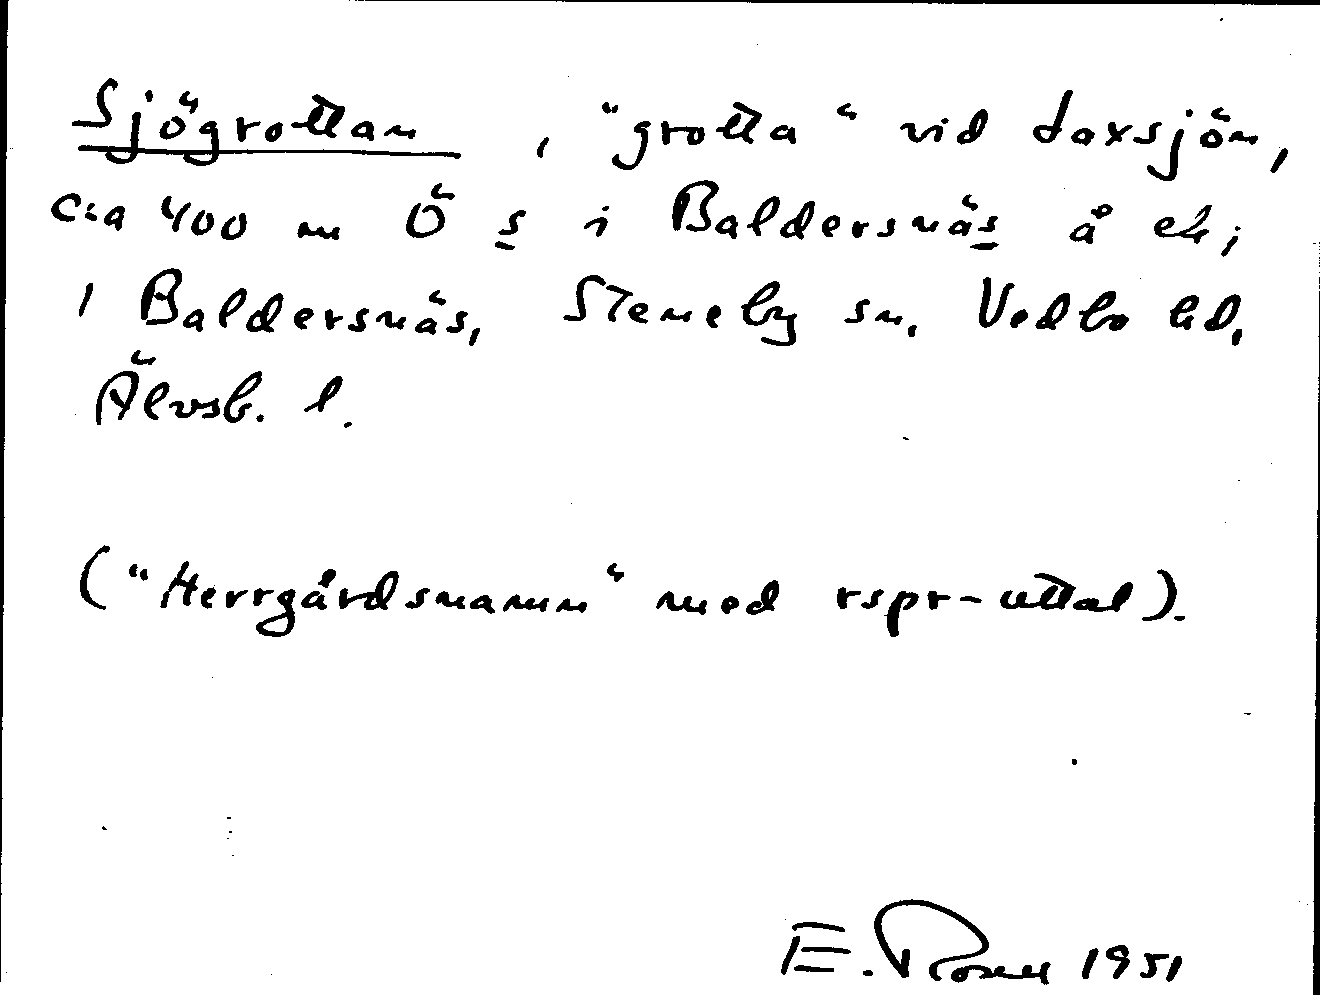 Sjögrottan, "grotta" vid Laxsjön,
c:a 400 m Ö s i Baldersnäs å ek;
1 Baldersnäs, Steneby sn. Vedbo hd.
Älvsb. l.
("Herrgårdsnamn" med rspr-uttal).
E. Rosell 1951